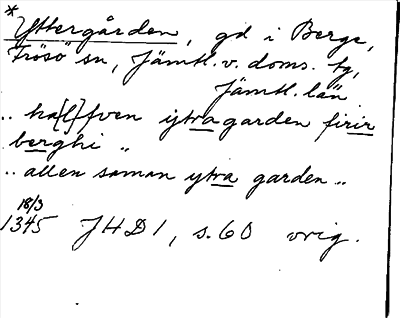 *
Yttergården, gd i Berge,
Frösö sn, Jämtl. v. doms. tg,
Jämtl. län
.. ha[l]fven ytra garden firir
berghi ..
.. allen saman ytra garden ..
18/3
1345 JHD 1, s. 60 orig.